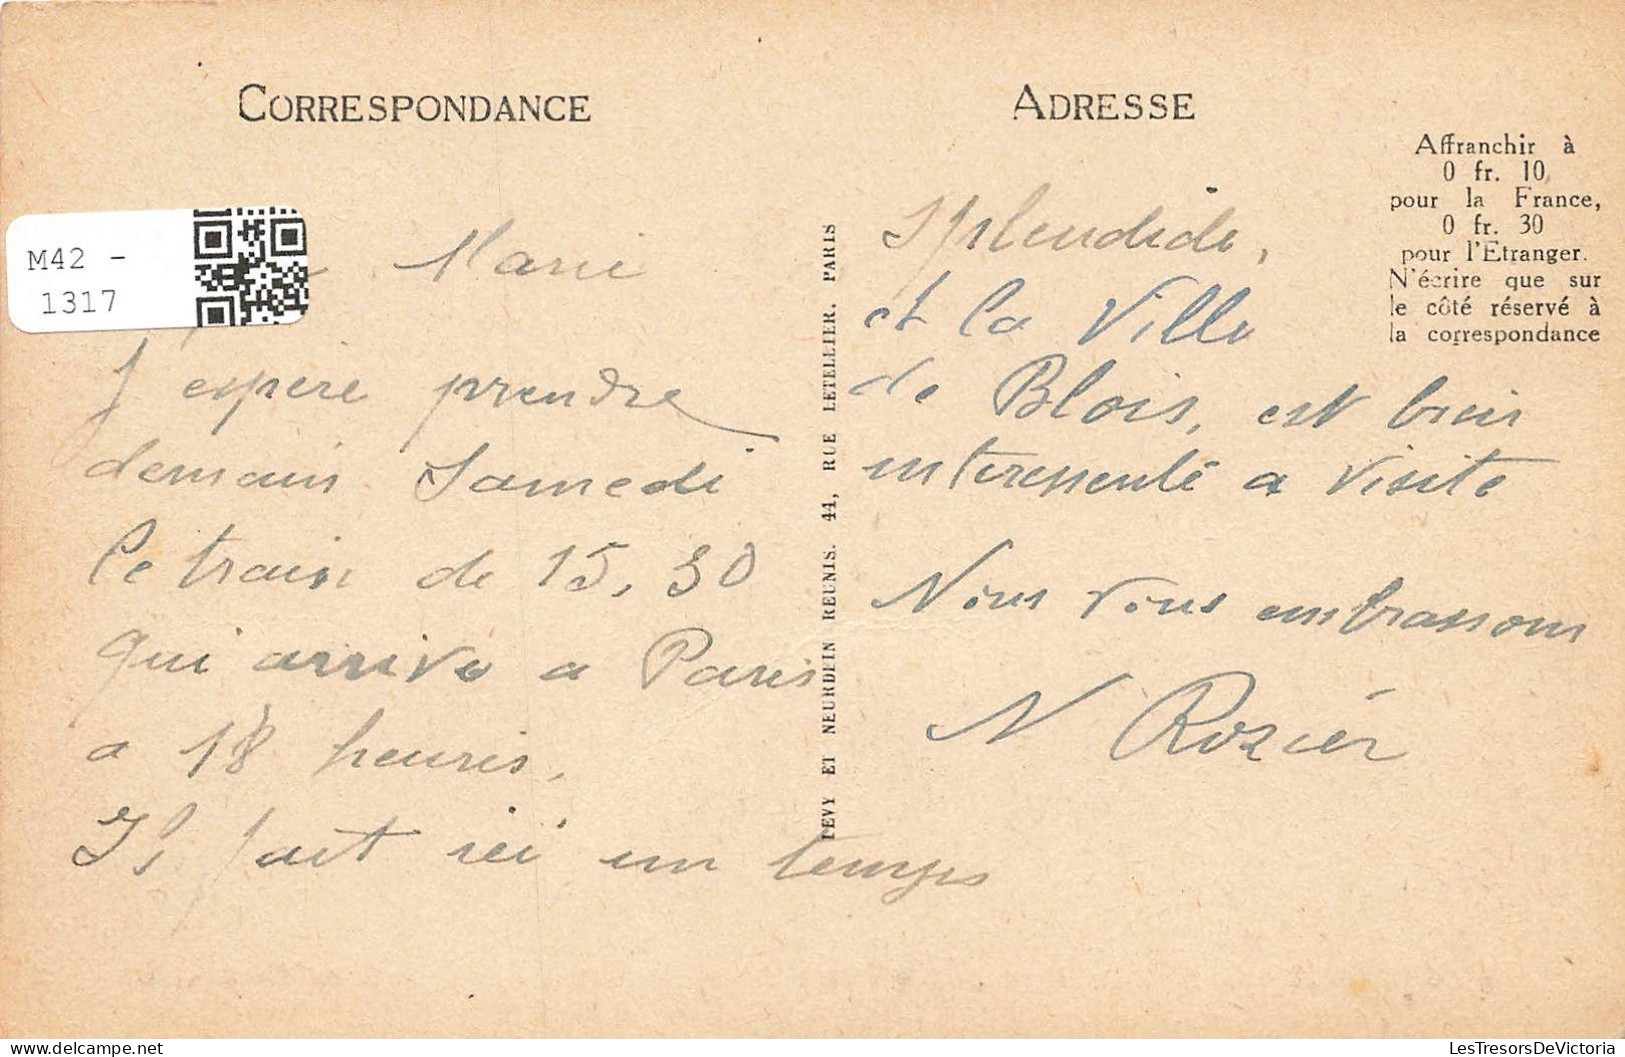 CORRESPONDANCE
M42 -
1317
Marie
J espere prendre
demain Samedi
le train de 15,30
qui arrive a Paris
a 18 heures,
Il fait ici un temps
LEVY ET NEURDEIN REUNIS. 44, RUE LETELLIER, PARIS
ADRESSE
Affranchir à
0 fr. 10,
pour la France,
0 fr. 30
pour l'Etranger.
N'écrire que sur
le côté réservé à
la correspondance
Splendide,
et la Ville
de Blois, est bien
interessente a visite
Nous vous embrassons
N Rozier
LesTresorsDeVictoria